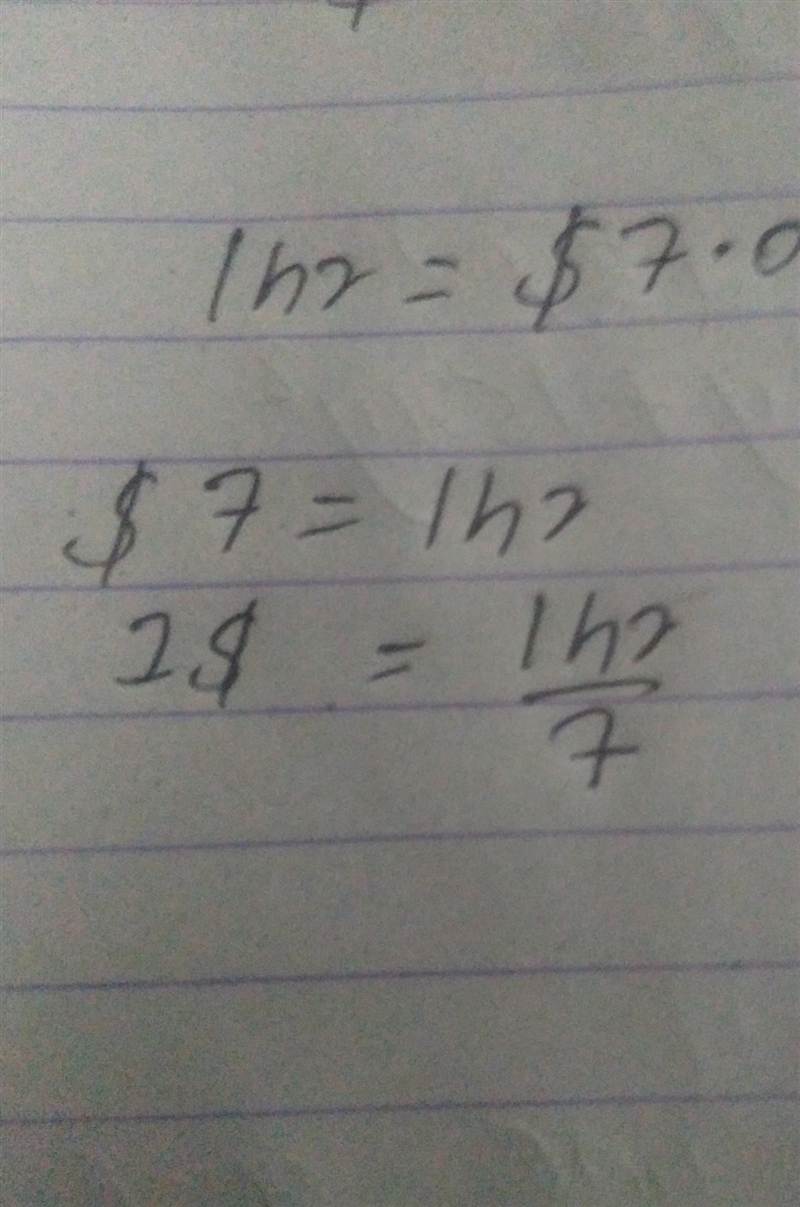 1hr = $7.0
$7 = 1hr
2$ = 1hr/7